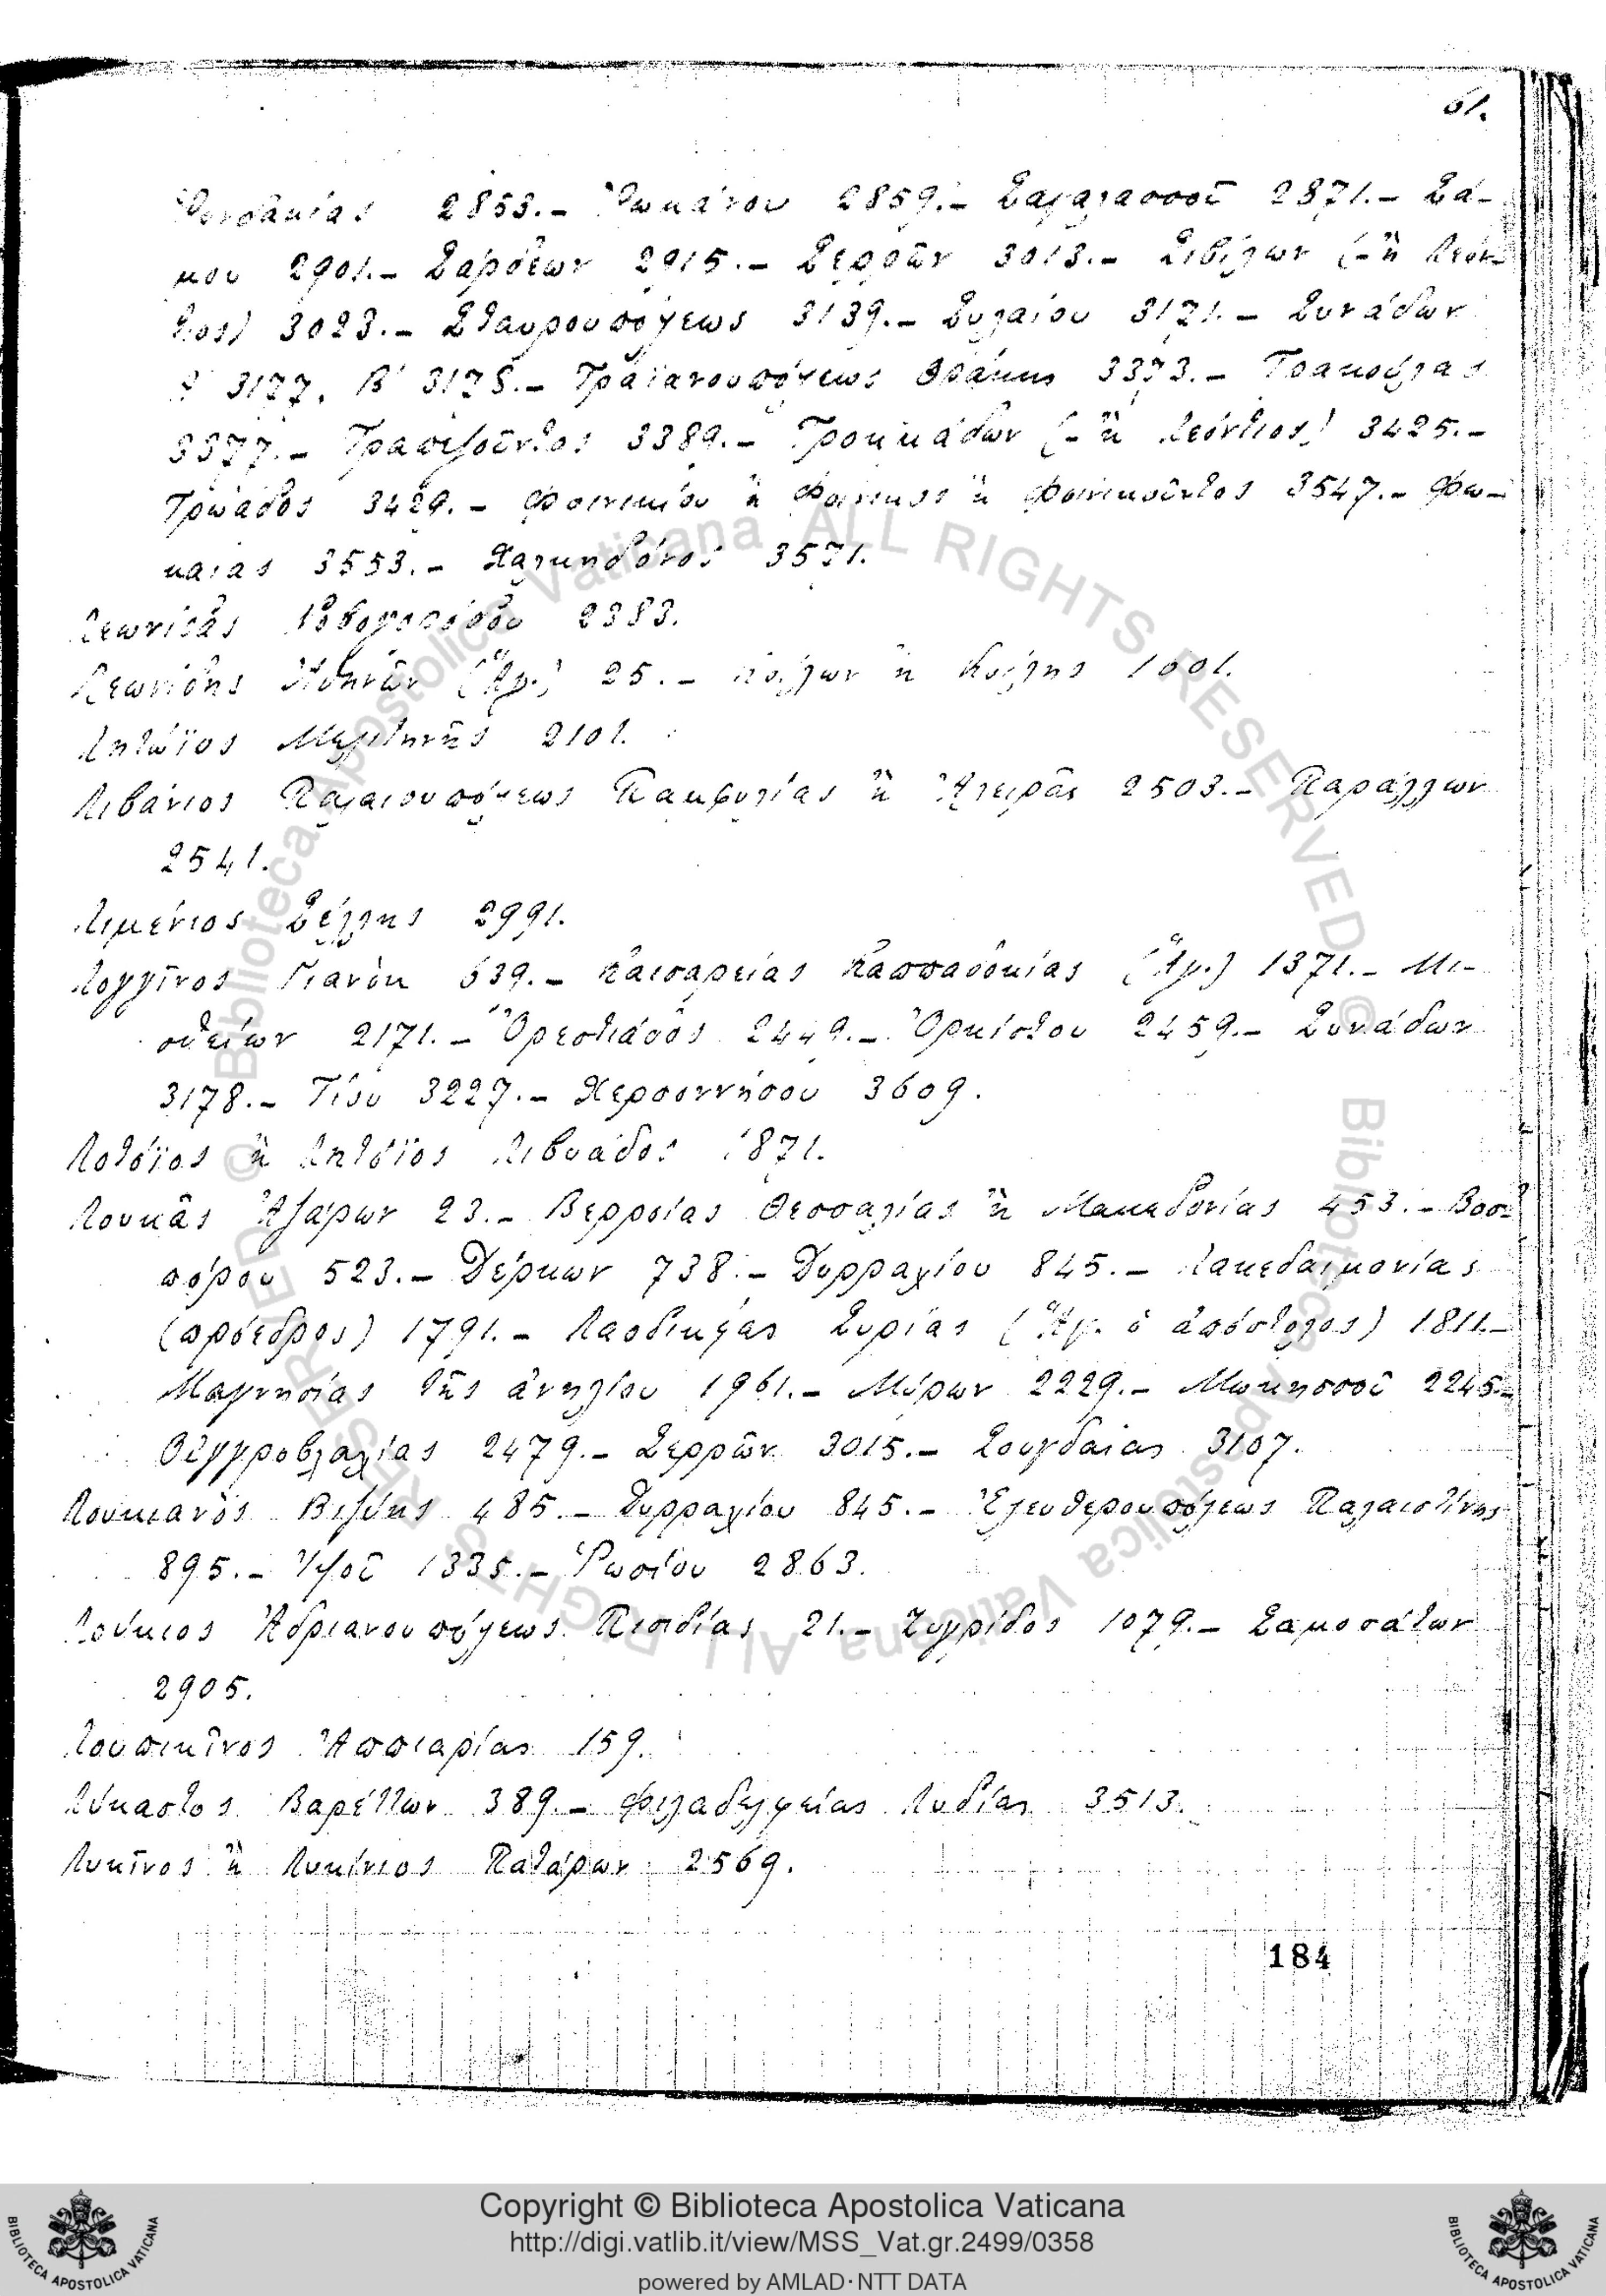 61.
2853.- 2859.- Σαγαλασσοῦ 2871.- Σά-
μου 2901.- Σάρδεων 2915.- Σερρῶν 3013.- Σιβίλων (- ἢ Λεόν-
τιος) 3023.- Σταυρουπόλεως 3139.- Συλαίου 3171.- Συνάδων
3177, Β' 3178.- Τραϊανουπόλεως Θρᾴκης 3373.- Τρακούλας
3377.- Τραπεζοῦντος 3389.- Τροκνάδων (- ἢ Λεόντιος) 3425.-
Τρωάδος 3429.- Φοινικίου ἢ Φοίνικος ἢ Φοινικοῦντος 3547.- Φω-
καίας 3553.- Χαλκηδόνος 3571.
Λεωνίδας 2383.
Λεωνίδης Ἀθηνῶν (Ἅγ.) 25.- Κοίλων ἢ Κοίλης 1601.
Λητώϊος Μελιτηνῆς 2101.
Λιβάνιος Παλαιουπόλεως Παμφυλίας ἢ 2503.- Παράλλων
2541.
Λιμένιος Σέλλης 2991.
Λογγῖνος 639.- Καισαρείας Καππαδοκίας (Ἅγ.) 1371.- Μι-
σθείων 2171.- Ὀρεστιάδος 2449.- Ὀρκίστου 2459.- Συνάδων
3178.- Τίου 3227.- Χερσοννήσου 3609.
Λοτόϊος ἢ Λητόϊος Λιβυάδος 1871.
Λουκᾶς Ἀζάρων 23.- Βερροίας Θεσσαλίας ἢ Μακεδονίας 453.- Βοσ-
πόρου 523.- Δέρκων 738.- Δυρραχίου 845.- Λακεδαιμονίας
(πρόεδρος) 1791.- Λαοδικείας Συρίας (Ἅγ. ὁ ἀπόστολος) 1811.-
Μαγνησίας τῆς ἀνηλίου 1961.- Μύρων 2229.- Μωκησσοῦ 2245.-
Οὑγγροβλαχίας 2479.- Σερρῶν 3015.- Σουγδαίας 3107.
Λουκιανὸς Βιζύης 485.- Δυρραχίου 845.- Ἐλευθερουπόλεως Παλαιστίνης
895.- Ἰψοῦ 1335.- Ῥωσίου 2863.
Λούκιος Ἀδριανουπόλεως Πισιδίας 21.- Ζυγρίδος 1079.- Σαμοσάτων
2905.
Λουπικῖνος Ἀππιαρίας 159.
Λύκαστος Βαρέττων 389.- Φιλαδελφείας Λυδίας 3513.
Λυκῖνος ἢ Λυκίνιος Πατάρων 2569.
184
© Biblioteca Apostolica Vaticana ALL RIGHTS RESERVED © Biblioteca Apostolica Vaticana ALL RIGHTS RESERVED
Copyright © Biblioteca Apostolica Vaticana
http://digi.vatlib.it/view/MSS_Vat.gr.2499/0358
powered by AMLAD·NTT DATA
BIBLIOTECA APOSTOLICA VATICANA
BIBLIOTECA APOSTOLICA VATICANA